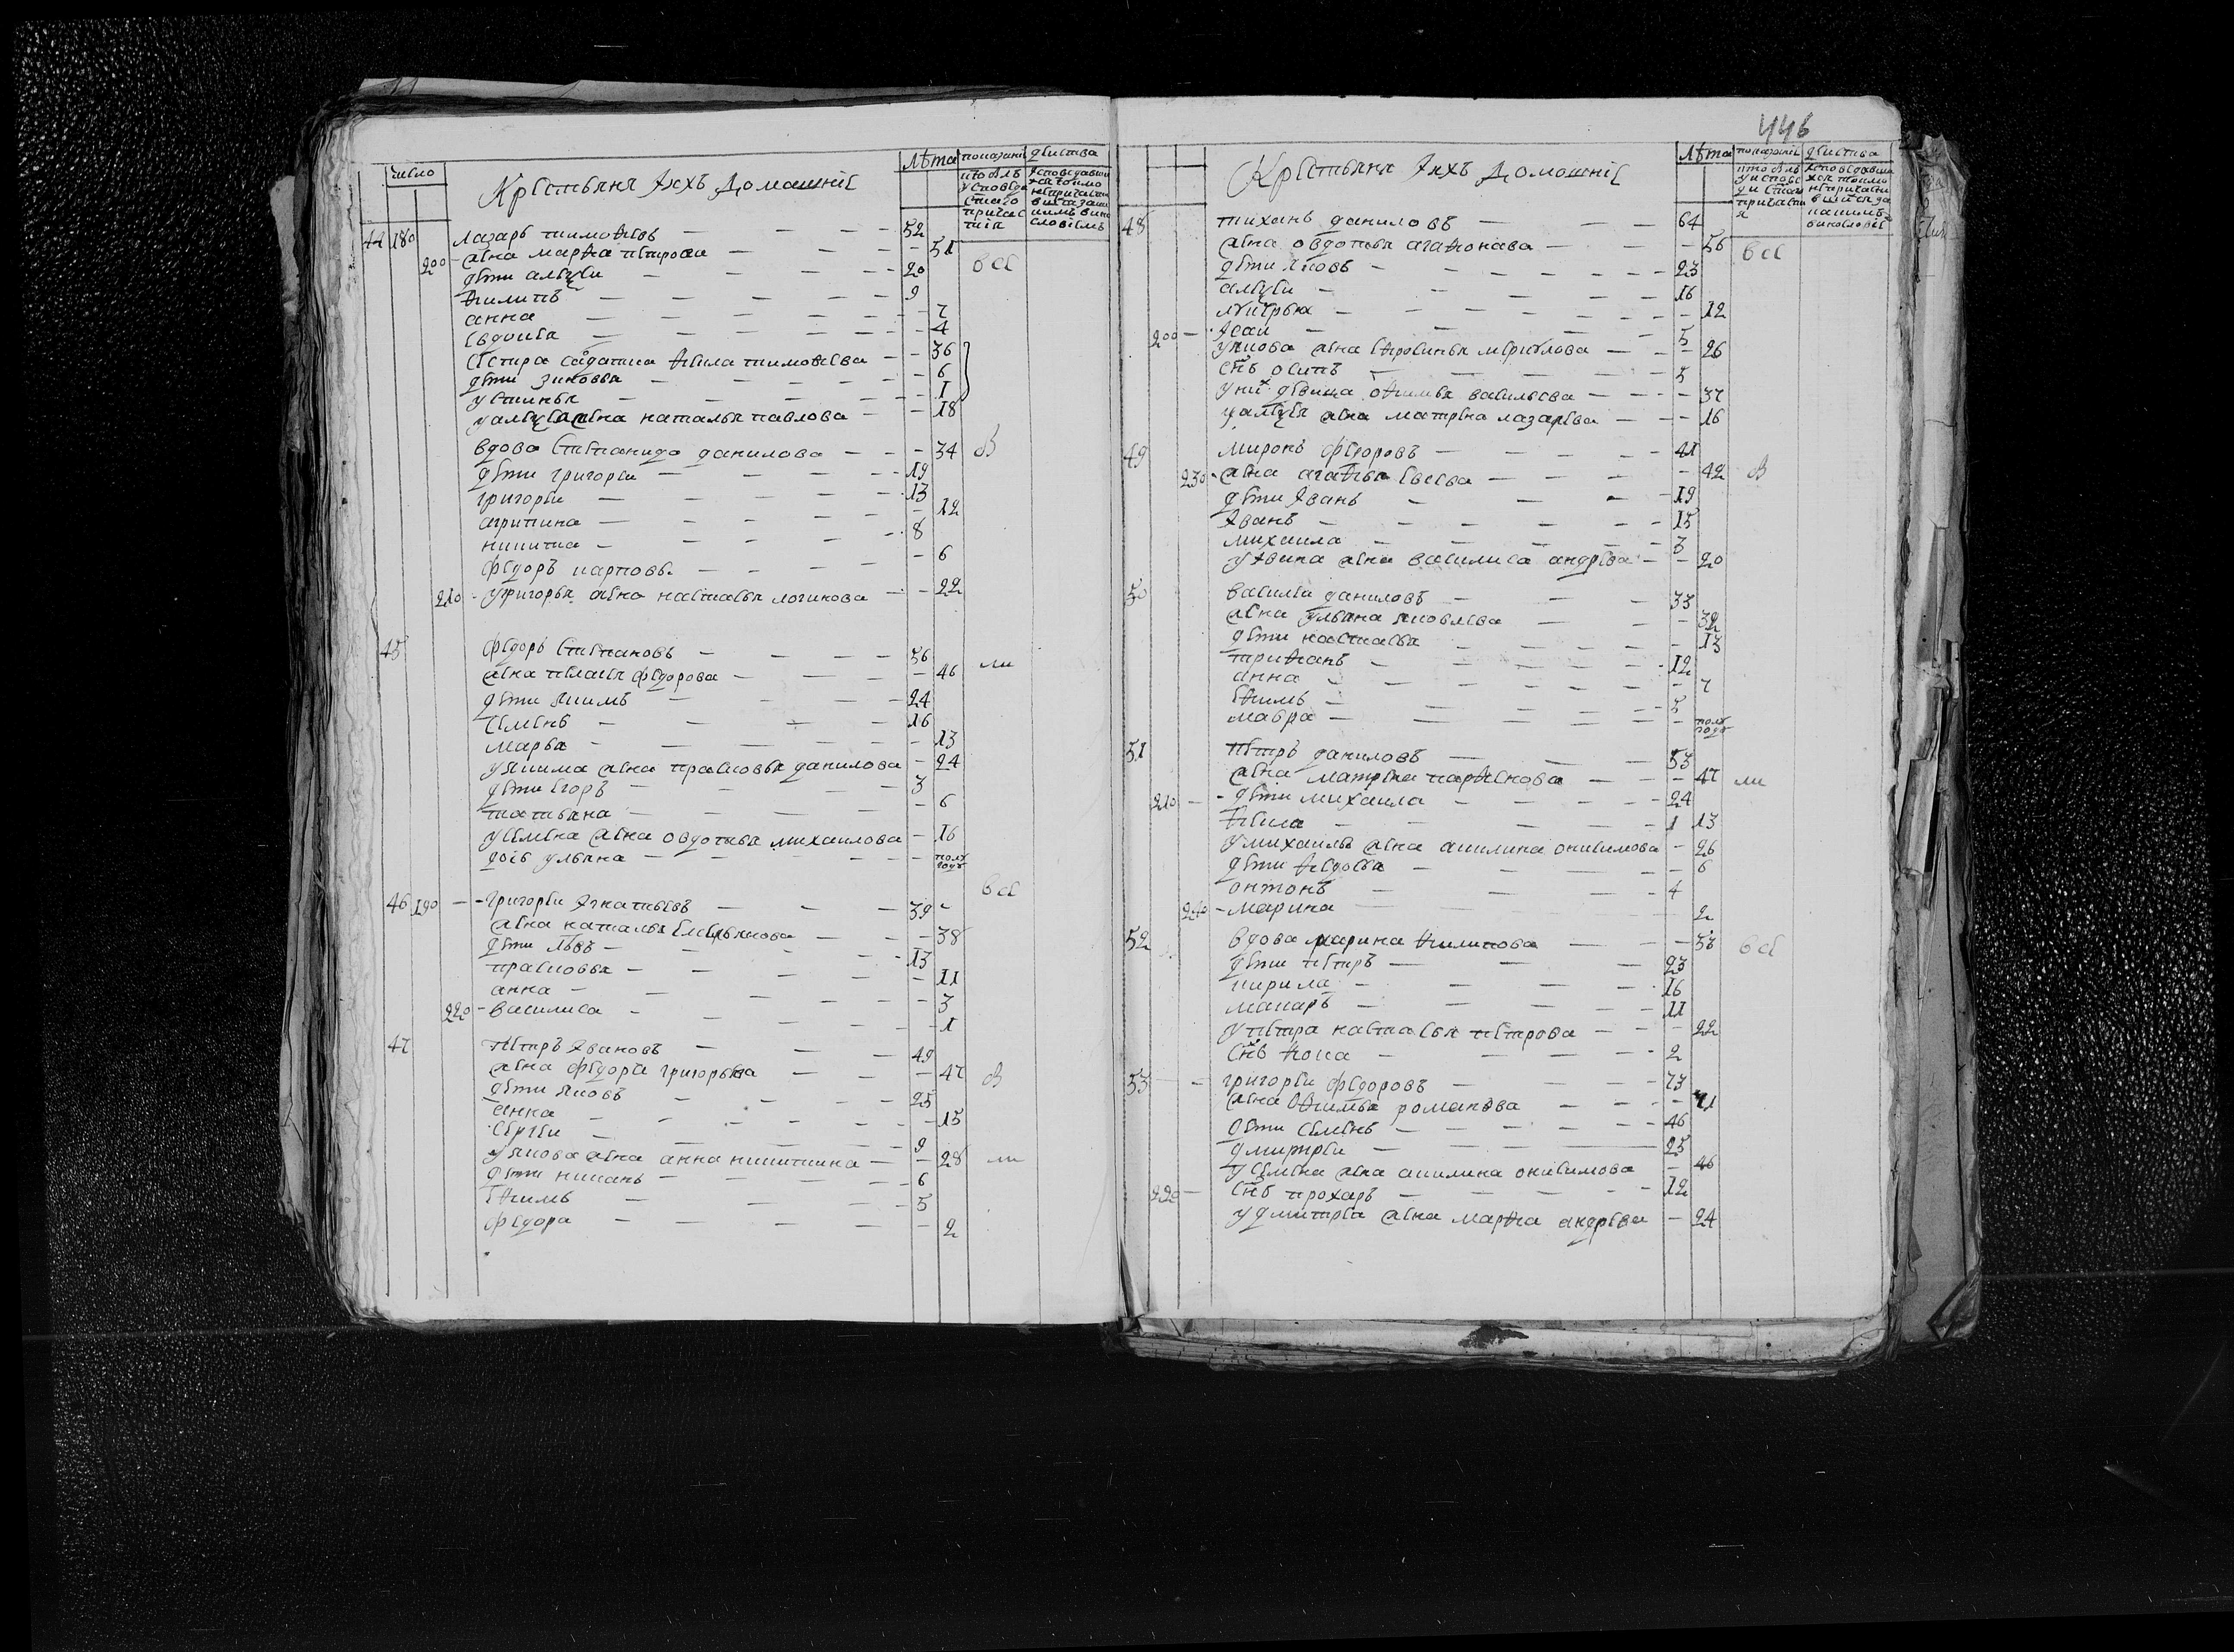 число
Крестьяня Ихъ Домашніе
лѣта
показаніе дѣиства
44 180 лазарь тимоѳѣевъ 52
200 жена марѳа петрова 51 вси
дѣти алеѯеи 20
ѳилипъ 9
анна 7
евдокея 4
сестра салдатка ѳекла тимоѳеева 36
дѣти зиновья 6
устинья 1
у алеѯея жена наталья павлова 18
вдова степанида данилова 34
дѣти григореи 19
григореи 13
агрипина 12
никита 8
федоръ карповъ 6
210 у григорья жена настасья логинова 22
45 федоръ степановъ 56
жена пелагея федорова 46
дѣти якимъ 24
семенъ 16
марья 13
у якима жена прасковья данилова 24
дѣти егоръ 3
татьяна 6
у семена жена овдотья михаилова 16
дочь ульяна полу года
46 190 григореи игнатьевъ 39 вси
жена наталья емельянова 38
дѣти левъ 13
прасковья 11
анна 3
220 василиса 1
47 петръ ивановъ 49
жена федора григорьева 47
дѣти яковъ 25
анна 15
сергеи 9
у якова жена анна никитина 28
дѣти никанъ 6
еѳимъ 5
федора 2
446
Крестьяня Ихъ Домошніе
лѣта
показаніе дѣиства
48 тиханъ даниловъ 64
жена овдотья агаѳонава 56 вси
дѣти яковъ 23
алеѯеи 16
лукерья 12
200 исаи 5
у якова жена еѳросинья меркулова 26
снъ осипъ 5
у них девица оѳимья васильева 37
у алеѯея жена матрена лазарева 16
49 миронъ федоровъ 41
230 жена агаѳья евсева 42
дѣти иванъ 19
иванъ 15
михаила 3
у ивана жена василиса андрева 20
50 василеи даниловъ 33
жена ульяна яковлева 32
дѣти настасья 13
триѳанъ 12
анна 7
еѳимъ 5
мавра полу года
51 петръ даниловъ 53
жена матрена парѳенова 47
210 дѣти михаила 24
ѳекла 13
у михаилы жена акилина онисимова 26
дѣти ѳедосья 6
онтонъ 4
240 марина 2
52 вдова марина ѳилипова 53 вси
дѣти петръ 23
кирила 16
макаръ 11
у петра настасья петрова 22
снъ ѳока 2
53 григореи федоровъ 73
жена оѳимья романова 71
дѣти семенъ 46
дмитреи 25
у семена жена акилина онисимова 46
220 снъ прохаръ 12
у дмитрея жена марѳа андрева 24